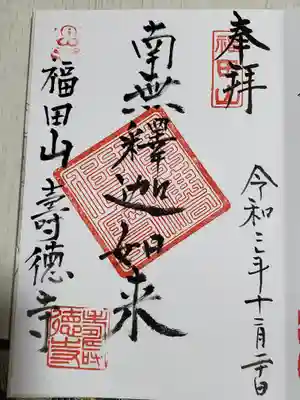 奉拝
福田山
令和三年十二月二十日
南無釋迦如来
福田山壽德寺